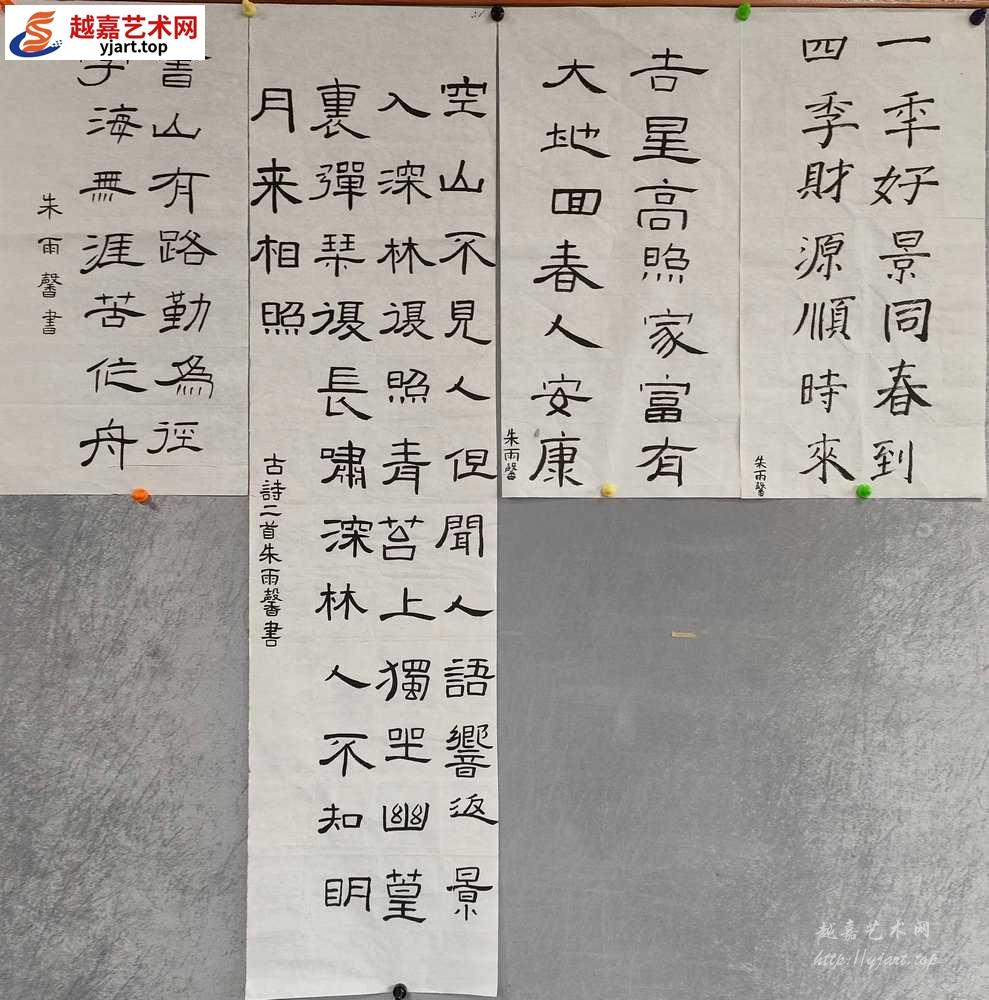 越嘉艺术网
yjart.top
一年好景同春到
四季財源順時來
朱雨馨
吉星高照家富有
大地回春人安康
朱雨馨
空山不見人但聞人語響返景
入深林復照青苔上獨坐幽篁
裏彈琴復長嘯深林人不知明
月来相照
古詩二首朱雨馨書
書山有路勤爲徑
學海無涯苦作舟
朱雨馨書
越嘉艺术网
http://yjart.top